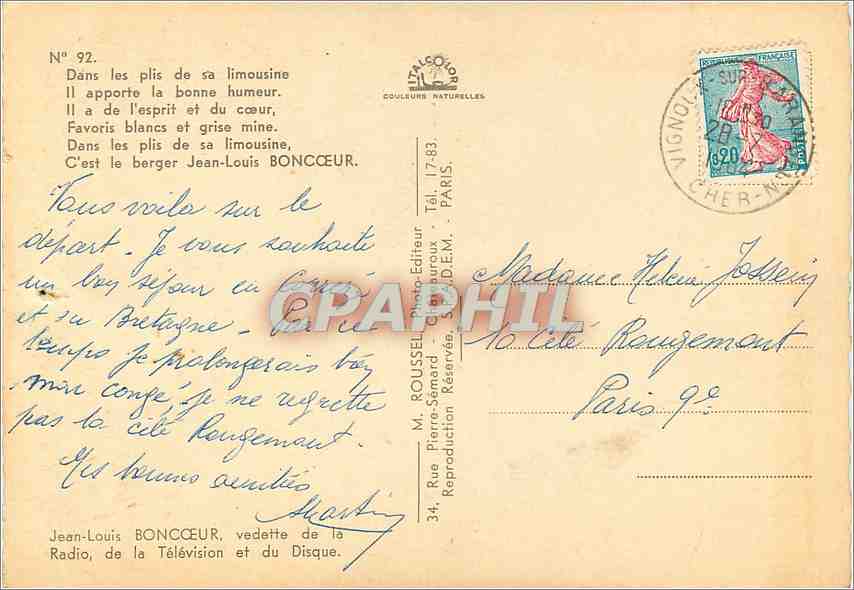 N° 92.
Dans les plis de sa limousine
Il apporte la bonne humeur.
Il a de l'esprit et du cœur,
Favoris blancs et grise mine.
Dans les plis de sa limousine,
C'est le berger Jean-Louis BONCŒUR.
ITALCOLOR
COULEURS NATURELLES
REPUBLIQUE FRANÇAISE
POSTES
0,20
VIGNOUX-SUR-BARAN
28
CHER-N
Vous voila sur le
départ. Je vous souhaite
un bon séjour en
et en Bretagne. Par ce
temps je prolongerais bien
mon congé, je ne regrette
pas la cité Rougemont.
Mes bonnes amitiés
Martin
Jean-Louis BONCŒUR, vedette de la
Radio, de la Télévision et du Disque.
M. ROUSSEL, Photo-Editeur
34, Rue Pierre-Sémard - Châteauroux - Tél. 17-83.
Reproduction Réservée. - PARIS.
CPARPHIL
Madame Helène Jossein
10 Cité Rougemont
Paris 9e